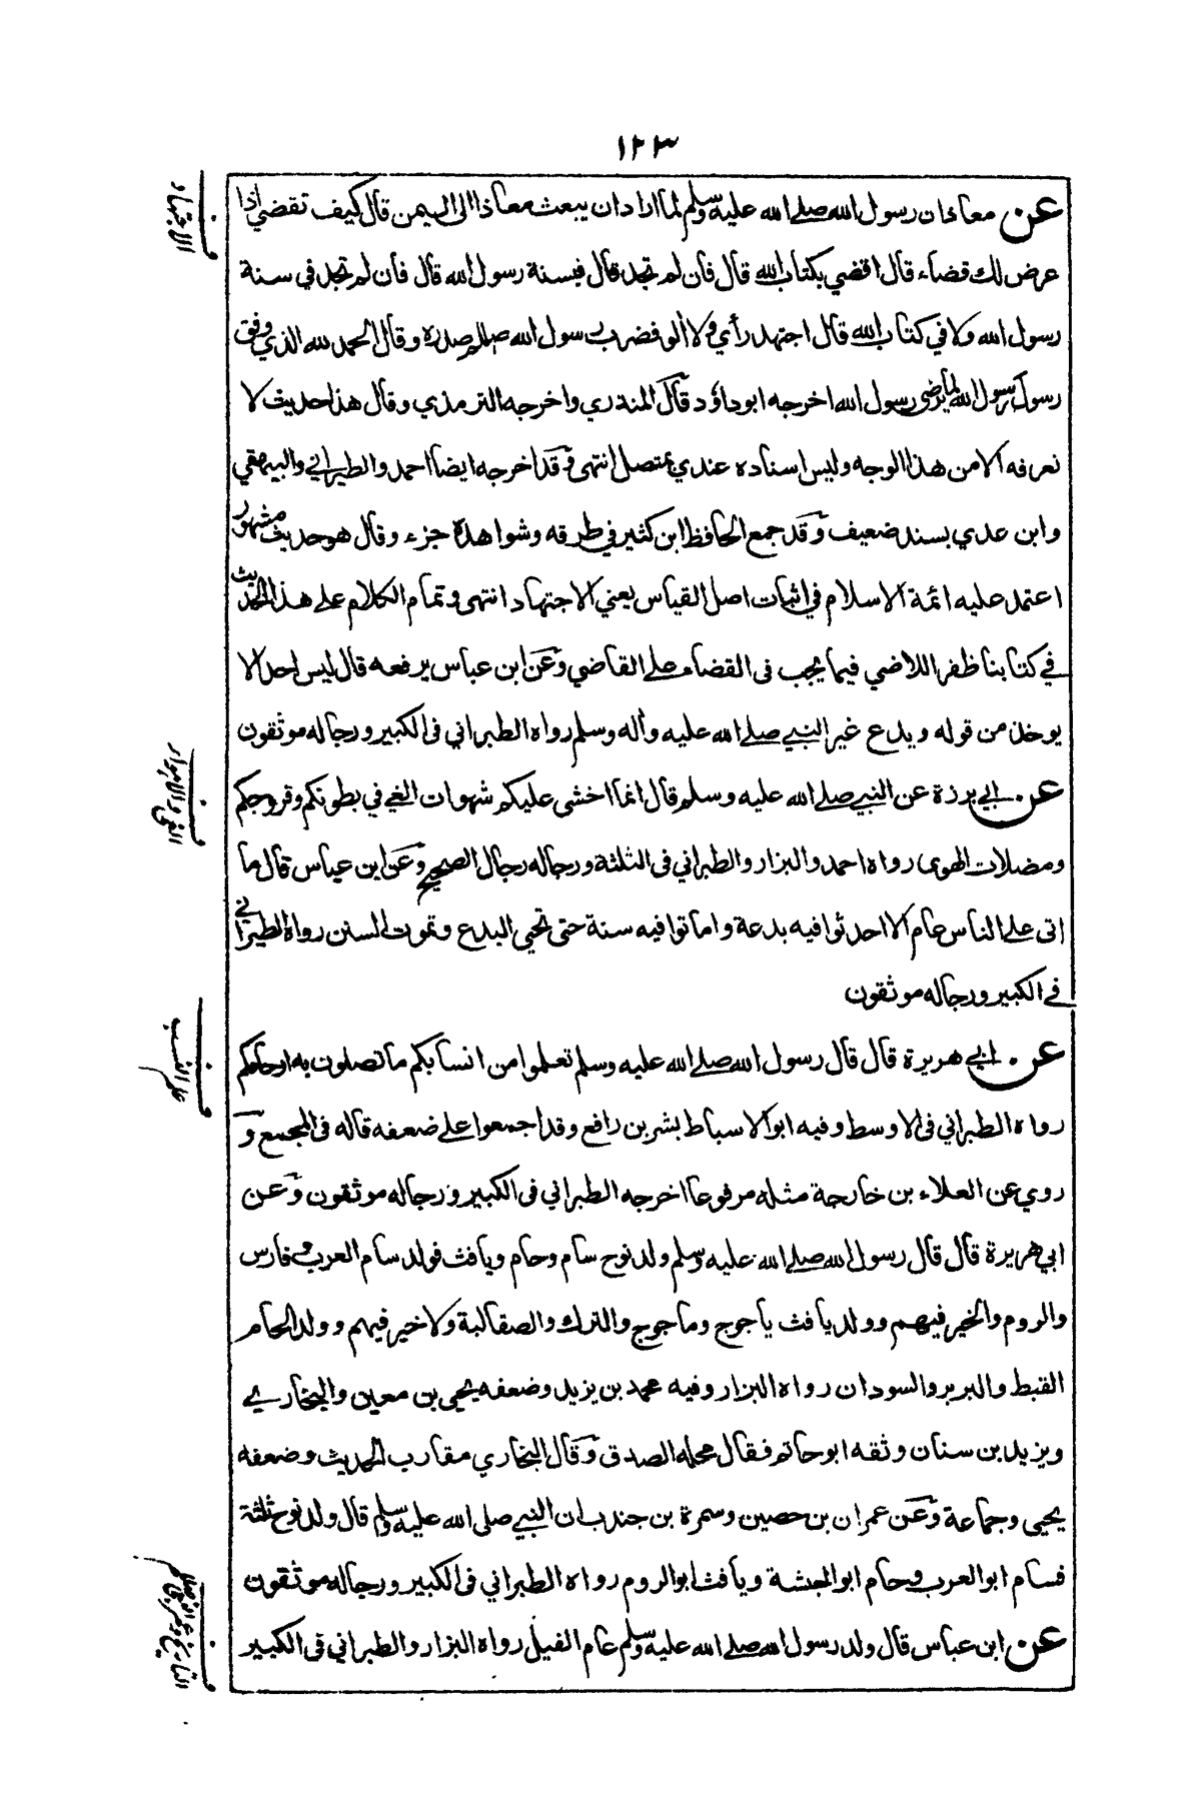 ١٢٣
عن معاذ ان رسول الله صلے الله عليه وسلم لما اراد ان يبعث معاذا الى اليمن قال كيف تقضي اذا
عرض لك قضاء قال اقضي بكتاب الله قال فان لم تجد قال فبسنة رسول الله قال فان لم تجد في سنة
رسول الله ولا في كتاب الله قال اجتهد رأي ولا ألو فضرب رسول الله صللم صدره وقال الحمد لله الذي وفق
رسول رسول الله لما يرضى رسول الله اخرجه ابوداؤد قال المنذري واخرجه الترمذي وقال هذا حديث لا
نعرفه الا من هذا الوجه وليس اسناده عندي بمتصل انتهى وقد اخرجه ايضا احمد والطبراني والبيهقي
وابن عدي بسند ضعيف وقد جمع الحافظ ابن كثير في طرقه وشواهده جزء وقال هو حديث مشهور
اعتمد عليه ائمة الاسلام في اثبات اصل القياس يعني الاجتهاد انتهى وتمام الكلام على هذا الحديث
في كتابنا ظفر اللاضي فيما يجب فى القضاء على القاضي وعن ابن عباس يرفعه قال ليس احد الا
يوخذ من قوله ويدع غير النبي صلے الله عليه وأله وسلم رواه الطبراني فى الكبير ورجاله موثقون
عن ابي برزة عن النبي صلے الله عليه وسلم قال انما اخشى عليكم شهوات الغي في بطونكم وفروجكم
ومضلات الهوى رواه احمد والبزار والطبراني فى الثلثة ورجاله رجال الصحيح وعن ابن عباس قال ما
اتى على الناس عام الا احدثوا فيه بدعة واماتوا فيه سنة حتى تحيى البدع وتموت السنن رواه الطبراني
في الكبير ورجاله موثقون
عن ابي هريرة قال قال رسول الله صلے الله عليه وسلم تعلموا من انسابكم ما تصلون به ارحامكم
رواه الطبراني فى الاوسط وفيه ابو الاسباط بشر بن رافع وقد اجمعوا على ضعفه قاله فى المجمع و
روي عن العلاء بن خارجة مثله مرفوعا اخرجه الطبراني فى الكبير ورجاله موثقون وعن
ابي هريرة قال قال رسول الله صلے الله عليه وسلم ولد نوح سام وحام ويافث فولد سام العرب وفارس
والروم والخير فيهم وولد يافث يأجوج ومأجوج والترك والصقالبة ولا خير فيهم وولد الحام
القبط والبربر والسودان رواه البزار وفيه محمد بن يزيد وضعفه يحيى بن معين والبخاري
ويزيد بن سنان وثقه ابو حاتم فقال محله الصدق وقال البخاري مقارب الحديث وضعفه
يحيى وجماعة وعن عمران بن حصين وسمرة بن جندب ان النبي صلى الله عليه وسلم قال ولد نوح ثلثة
فسام ابو العرب وحام ابو الحبشة ويافث ابو الروم رواه الطبراني فى الكبير ورجاله موثقون
عن ابن عباس قال ولد رسول الله صلے الله عليه وسلم عام الفيل رواه البزار والطبراني فى الكبير
ف الاجتهاد
ف
ف علم النسب
ف التاريخ